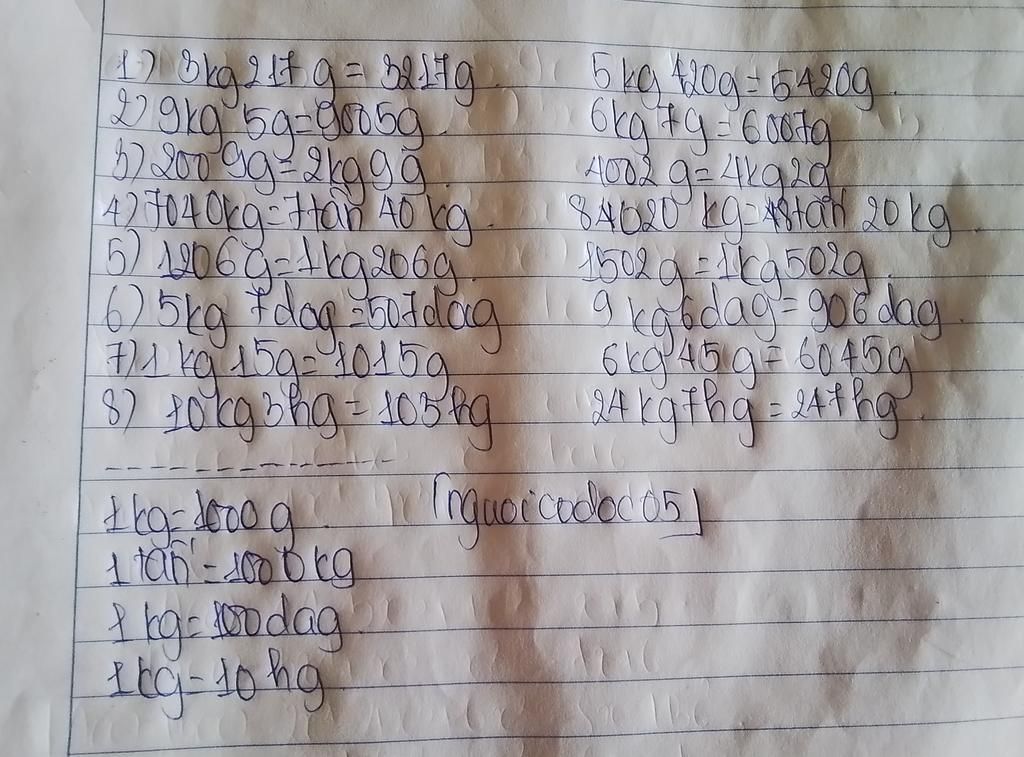 1) 3kg 217g = 3217g. 5kg 420g = 5420g.
2) 9kg 5g = 9005g. 6kg 7g = 6007g
3) 2009g = 2kg 9g. 4002g = 4kg 2g
4) 7040kg = 7 tấn 40 kg. 84020 kg = 48 tấn 20 kg.
5) 1206g = 1kg 206g. 1502g = 1kg 502g.
6) 5kg 7dag = 507dag 9 kg 6dag = 906 dag.
7) 1 kg 15g = 1015g 6kg 45g = 6045g
8) 10kg 3hg = 103hg 24kg 7hg = 247hg.
1kg = 1000g. [nguoicodoc05]
1 tấn = 1000kg
1 kg = 100dag.
1kg = 10hg